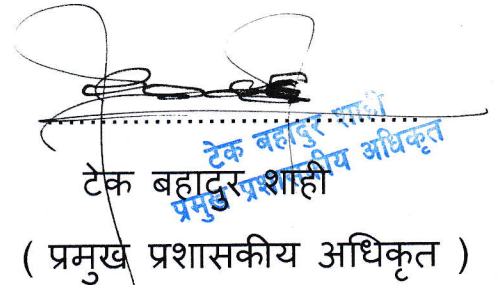 टेक बहादुर शाही
प्रमुख प्रशासकीय अधिकृत
टेक बहादुर शाही
( प्रमुख प्रशासकीय अधिकृत )